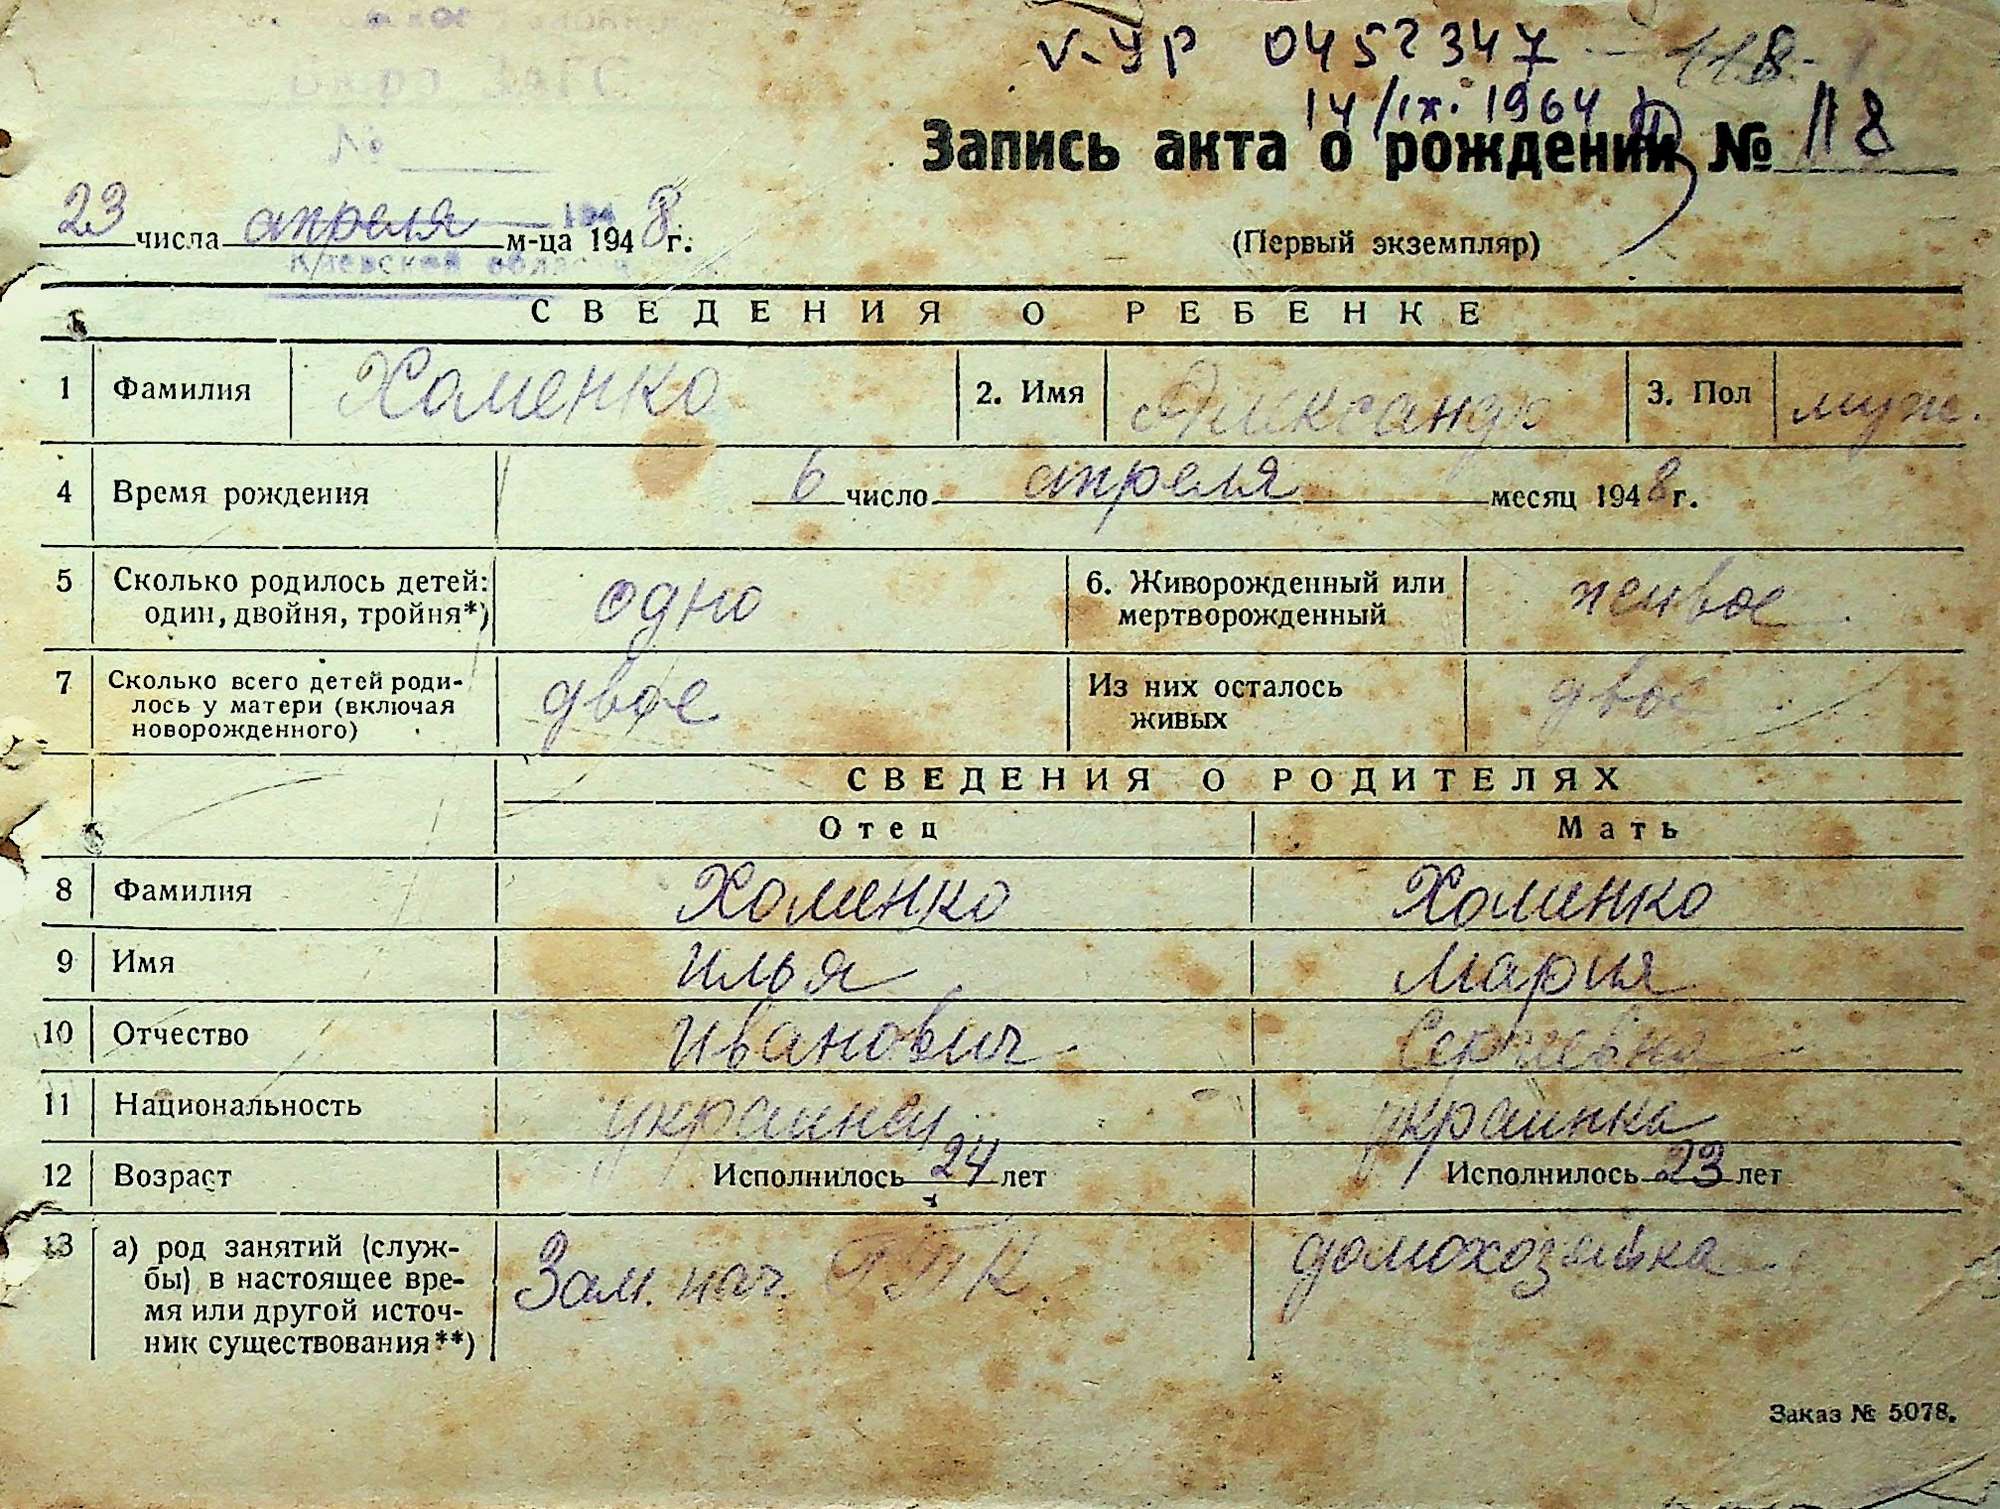 V-УР 0452347 - 118 -
14/IX. 1964
Запись акта о рождении № 118
№
23 числа апреля м-ца 1948 г.
(Первый экземпляр)
Киевской области
СВЕДЕНИЯ О РЕБЕНКЕ
1 Фамилия Хоменко 2. Имя Александр 3. Пол муж.
4 Время рождения 6 число апреля месяц 1948 г.
5 Сколько родилось детей: одно 6. Живорожденный или
один, двойня, тройня*) мертворожденный
7 Сколько всего детей роди- двое Из них осталось двое
лось у матери (включая живых
новорожденного)
СВЕДЕНИЯ О РОДИТЕЛЯХ
Отец Мать
8 Фамилия Хоменко Хоменко
9 Имя Илья Мария
10 Отчество Иванович Сергиевна
11 Национальность украинец украинка
12 Возраст Исполнилось 24 лет Исполнилось 23 лет
13 а) род занятий (служ- Зам. нач. домохозяйка
бы) в настоящее вре-
мя или другой источ-
ник существования**)
Заказ № 5078.